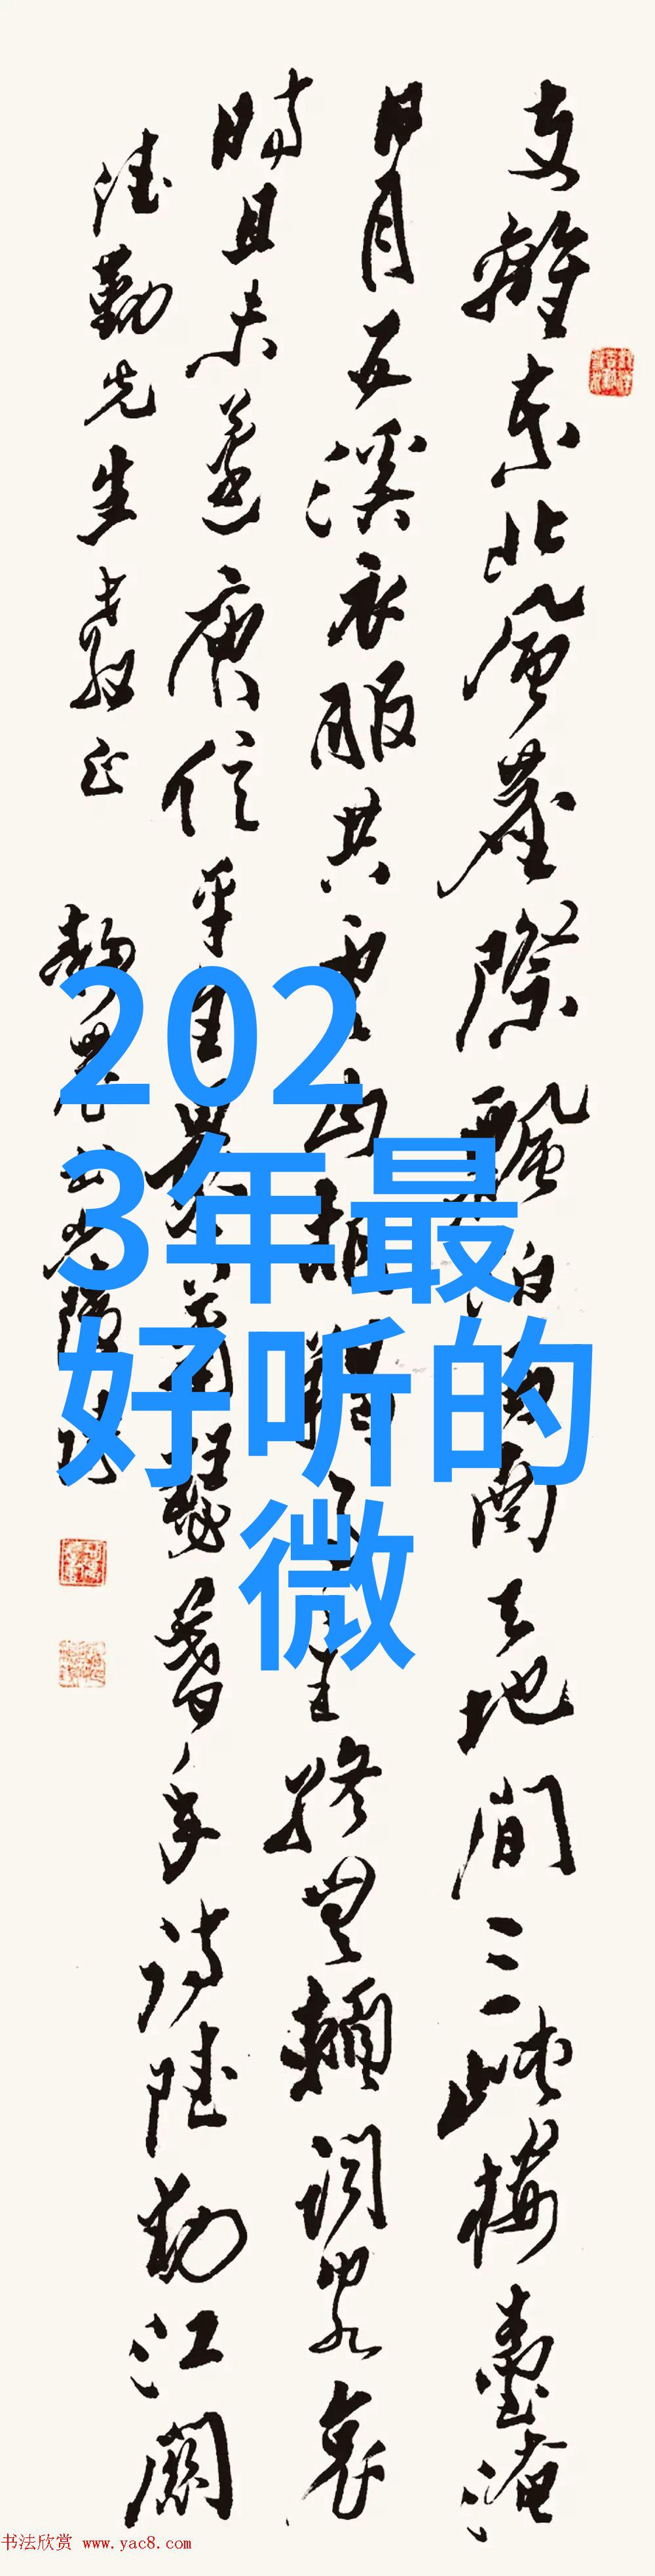 支離東北風塵際飄泊西南天地間三峽樓臺淹
日月五溪衣服共雲山胡羯事主終無賴詞客哀
時且未還庾信平生最蕭瑟暮年詩動江關
陸勤先生教正
靜農
202
3年最
好听的
微
书法欣赏 www.yac8.com